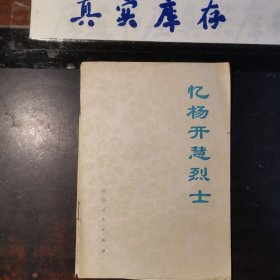 真实库存
忆杨开慧烈士